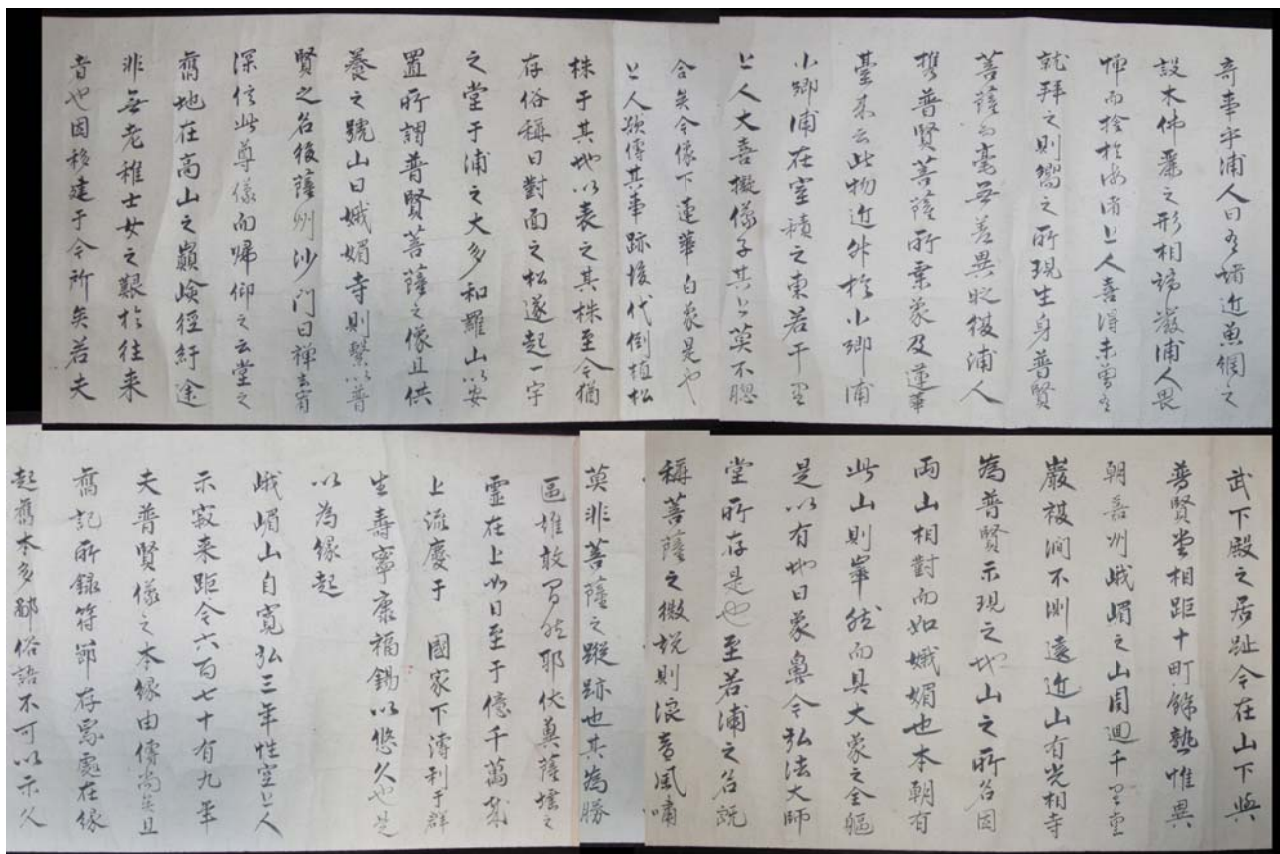 奇事乎浦人曰有堵近魚網之
設木佛麗之形相端嚴浦人畏
怖而捨於海渚上人喜得未曽有
就拜之則嚮之所現生身普賢
菩薩而毫無差異既復浦人
携普賢菩薩所乗象及蓮華
臺来云此物近舛於小郷浦
小郷浦在室積之東若干里
上人大喜擬像于其上莫不腮
合矣今像下蓮華白象是也
上人欲傳其事跡後代倒植松
株于其地以表之其株至今猶
存俗稱曰對面之松遂起一宇
之堂于浦之大多和羅山以安
置所謂普賢菩薩之像且供
養之號山曰峨嵋寺則繋以普
賢之名後薩州沙門曰禅云者
深信此尊像而帰仰之云堂之
舊地在高山之巓嶮徑紆途
非無老稚士女之艱於往来
者也因移建于今所矣若夫
武下殿之居趾今在山下與
普賢堂相距十町餘熟惟異
朝嘉州峨嵋之山周廻千里重
巖複澗不測遠近山有光相寺
為普賢示現之地山之所名因
両山相對而如娥媚也本朝有
此山則崒然而具大象之全軀
是以有地曰象鼻今弘法大師
堂所存是也至若浦之名説
稱菩薩之微説則浪音風嘯
莫非菩薩之蹤跡也其為勝
區誰敢間然耶伏冀薩埵之
霊在上如日至于億千萬載
上流慶于 國家下溥利于群
生壽寧康福錫以悠久也是
以為縁起
峨嵋山自寛弘三年性空上人
示寂来距今六百七十有九年
夫普賢像之本縁由傳尚矣且
舊記所録符節存焉處在縁
起舊本多鄙俗語不可以示久